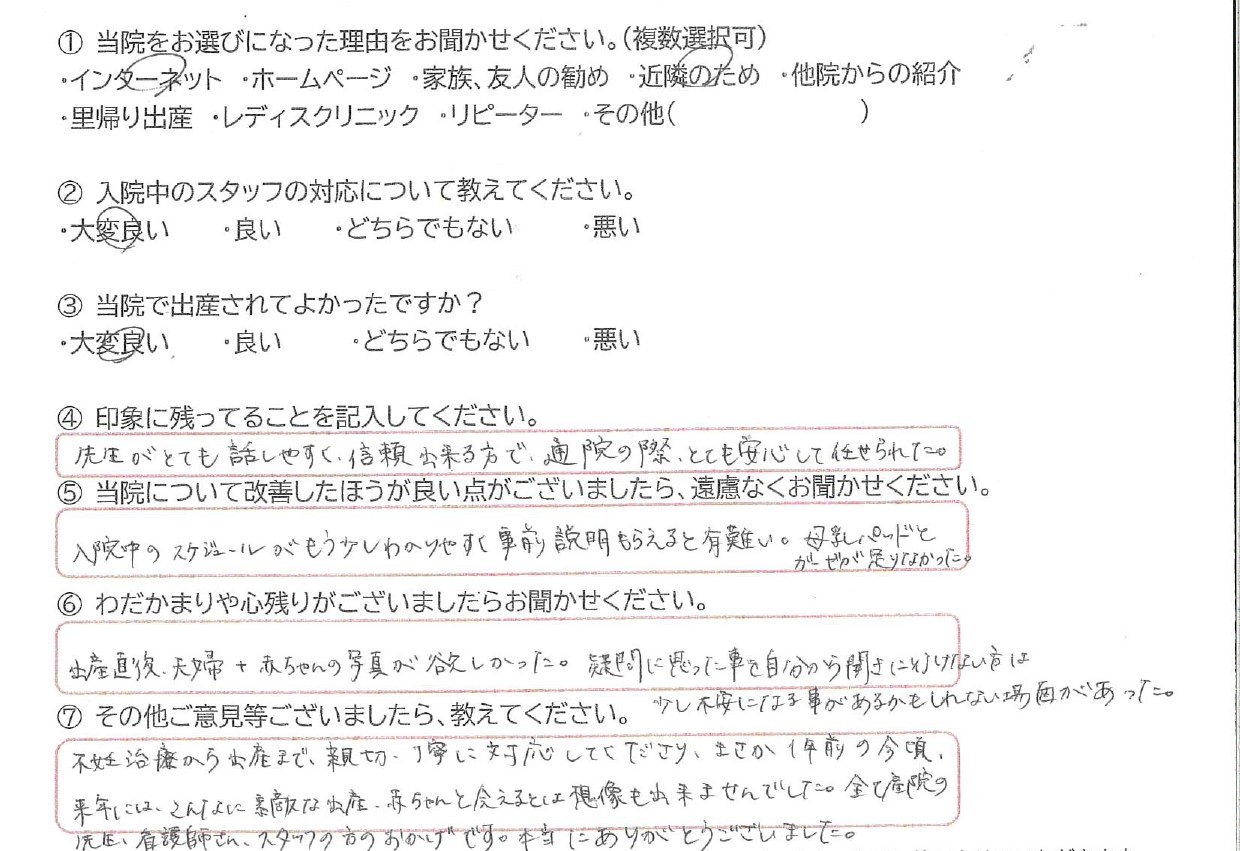 ① 当院をお選びになった理由をお聞かせください。(複数選択可)
・インターネット ・ホームページ ・家族、友人の勧め ・近隣のため ・他院からの紹介
・里帰り出産 ・レディスクリニック ・リピーター ・その他( )
② 入院中のスタッフの対応について教えてください。
・大変良い ・良い ・どちらでもない ・悪い
③ 当院で出産されてよかったですか?
・大変良い ・良い ・どちらでもない ・悪い
④ 印象に残ってることを記入してください。
先生がとても話しやすく、信頼出来る方で、通院の際、とても安心して任せられた。
⑤ 当院について改善したほうが良い点がございましたら、遠慮なくお聞かせください。
入院中のスケジュールがもう少しわかりやすく事前説明もらえると有難い。母乳パッドと
ガーゼが足りなかった。
⑥ わだかまりや心残りがございましたらお聞かせください。
出産直後、夫婦+赤ちゃんの写真が欲しかった。疑問に思った事を自分から聞きに行けない方は
少し不安になる事があるかもしれない場面があった。
⑦ その他ご意見等ございましたら、教えてください。
不妊治療から出産まで、親切、丁寧に対応してくださり、まさか1年前の今頃、
来年には、こんなに素敵な出産、赤ちゃんと会えるとは想像も出来ませんでした。全て産院の
先生、看護師さん、スタッフの方のおかげです。本当にありがとうございました。